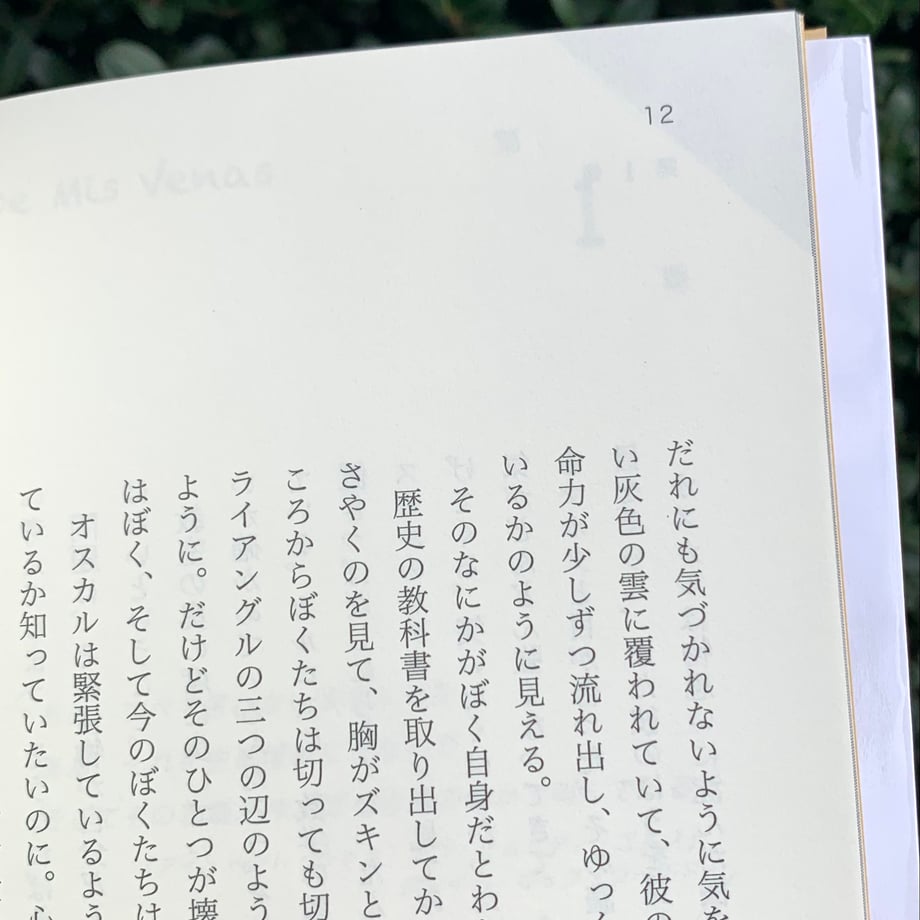 12
だれにも気づかれないように気を
い灰色の雲に覆われていて、彼の
命力が少しずつ流れ出し、ゆっく
いるかのように見える。
そのなにかがぼく自身だとわ
歴史の教科書を取り出してか
さやくのを見て、胸がズキンと
ころからぼくたちは切っても切
ライアングルの三つの辺のよう
ように。だけどそのひとつが壊
はぼく、そして今のぼくたちは
オスカルは緊張しているよう
ているか知っていたいのに。心
De Mis Venas
1